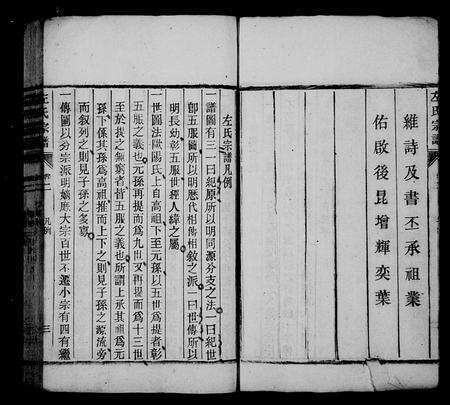 左氏宗譜
維詩及書丕承祖業
佑啟後昆增輝奕葉
左氏宗譜凡例
一譜圖有三一曰紀原所以明同源分支之法一曰紀世
卽五服圖所以明歷代相傳相敘之派一曰世傳所以
明長幼彰五服世經人緯之屬
一世圖法歐陽氏上自高祖下至元孫以五世爲提者彰
五服之義也元孫再提而爲九世又再提而爲十三世
至於我之無窮者皆五服之義也所謂上承其祖爲元
孫下係其孫爲高祖推而上下之則見子孫之源流旁
而敘列之則見子孫之多寡
一傳圖以分宗派明嫡庶大宗百世不遷小宗有四有繼
左氏宗譜
凡例
三